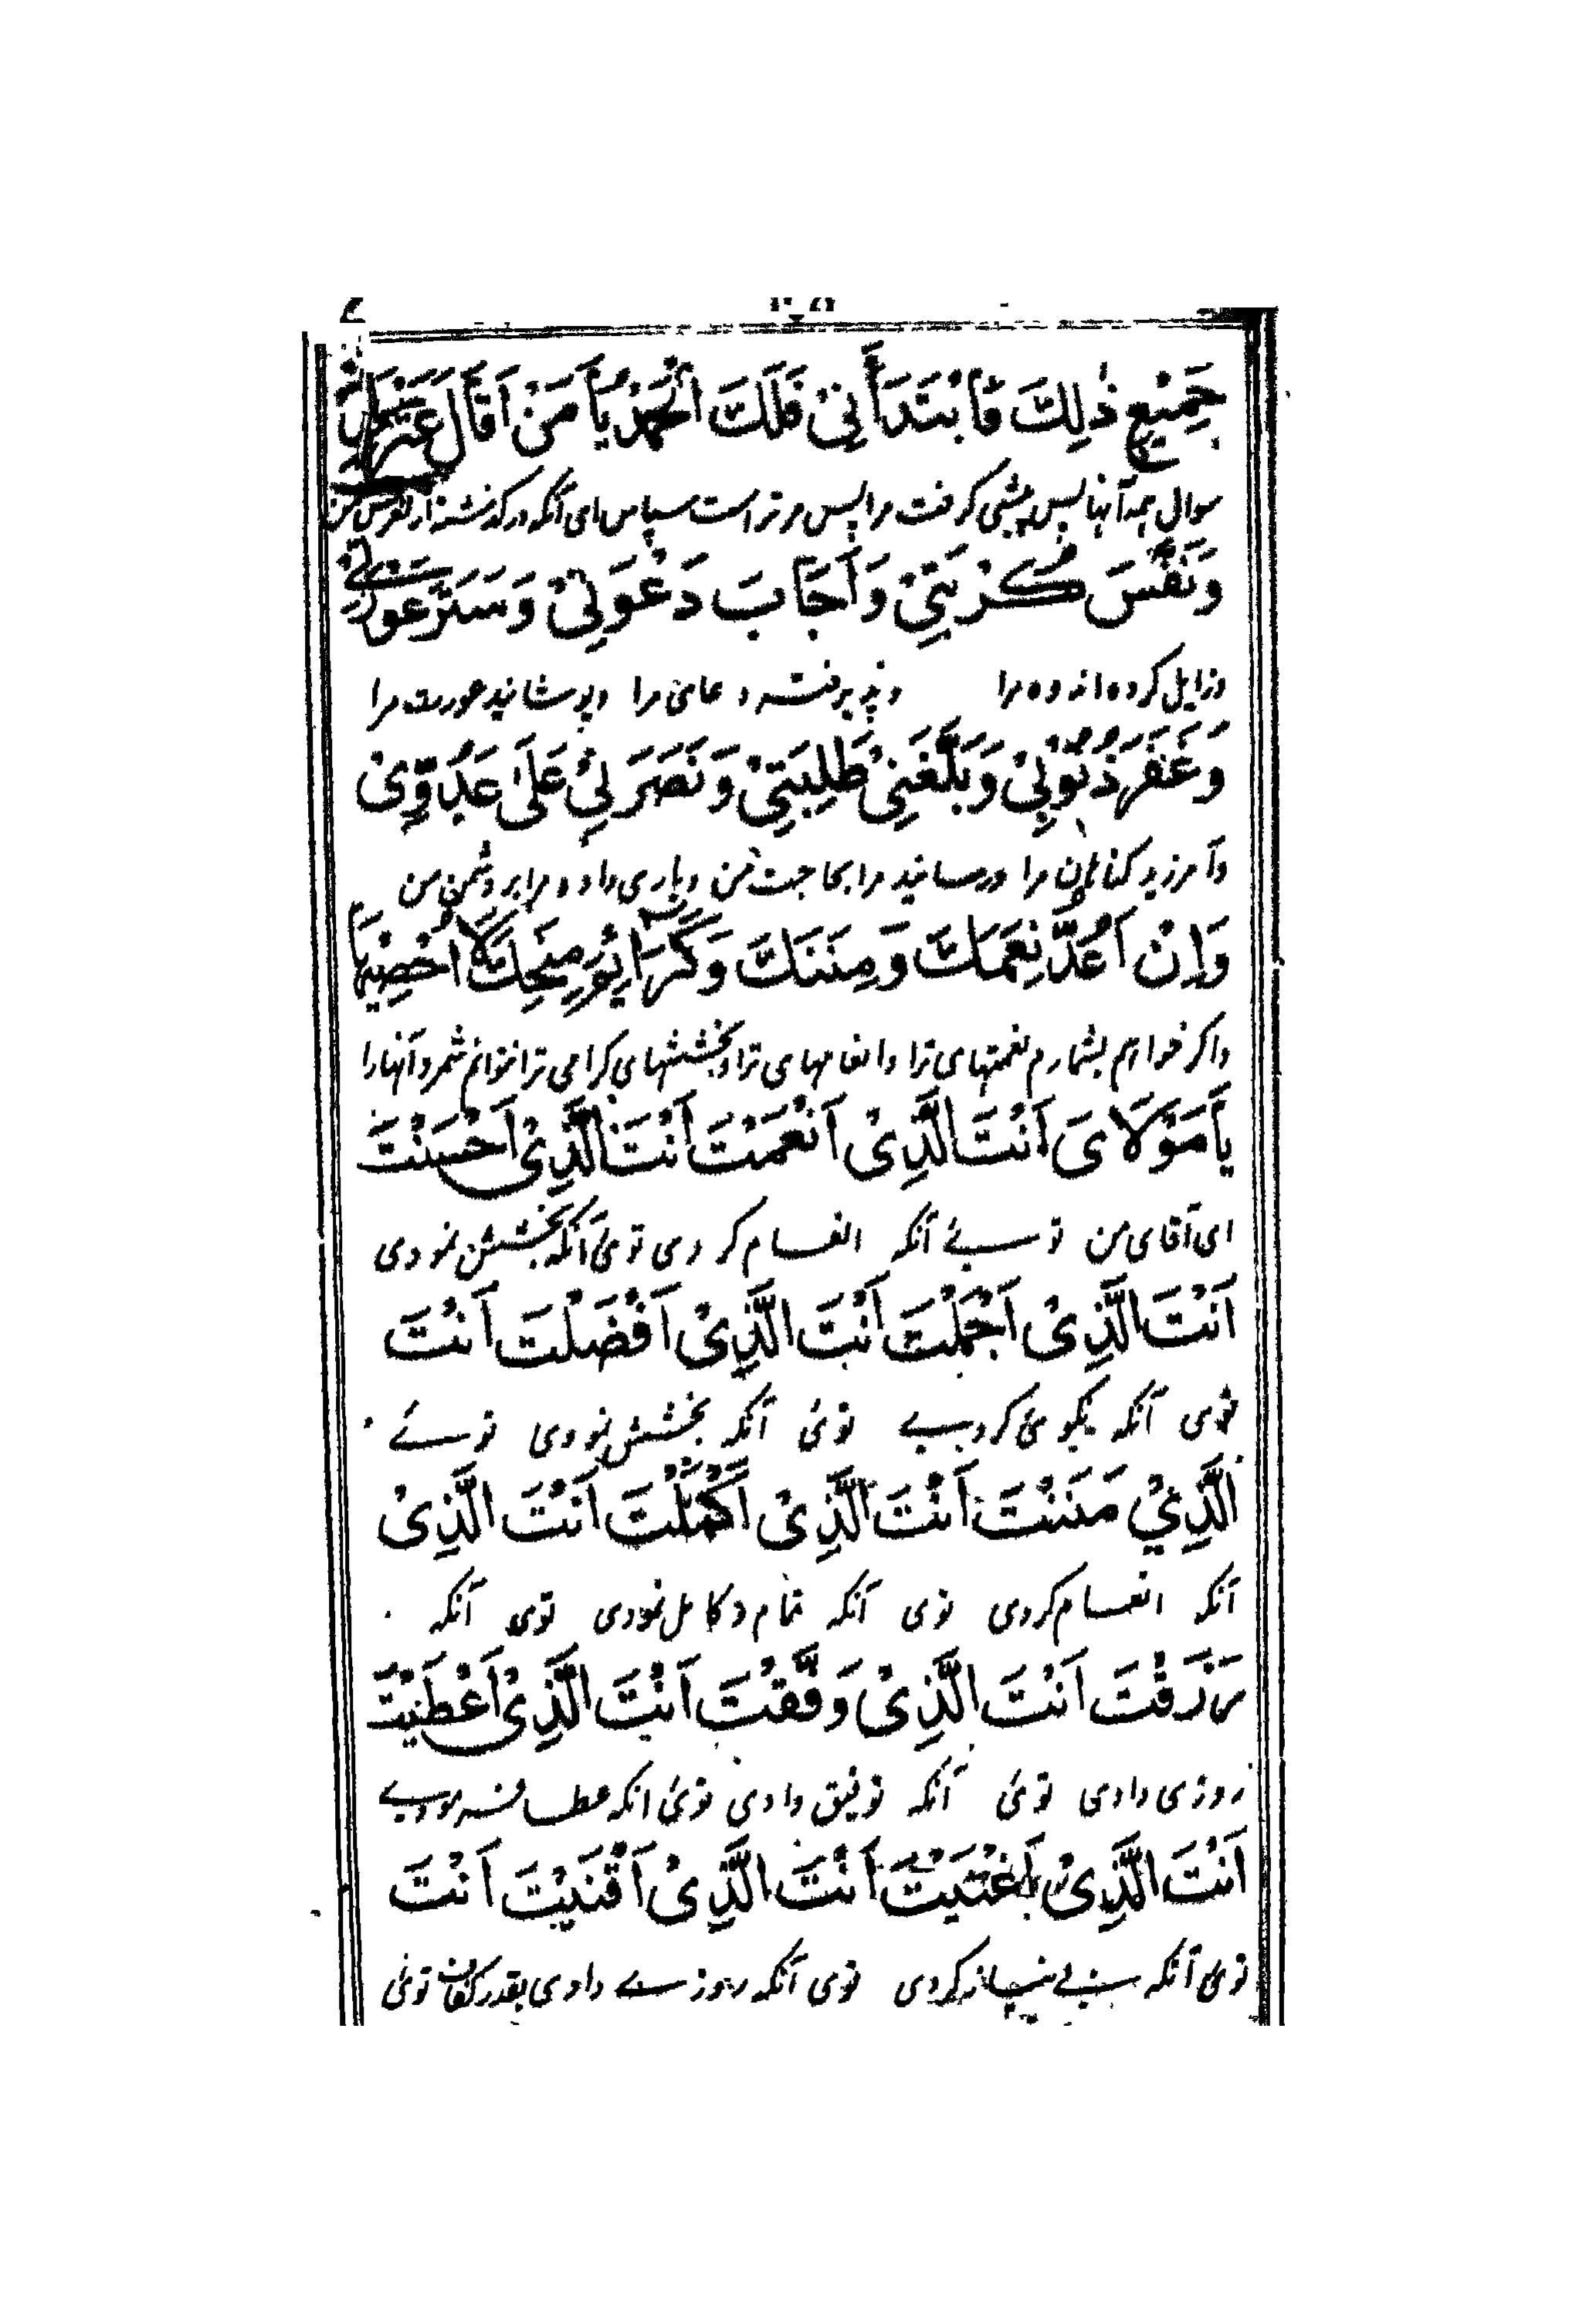 جَمِیْعِ ذٰلِكَ فَابْتَدَأَنِیْ فَلَكَ الْحَمْدُ یَا مَنْ اَقَالَ عَثْرَتِیْ
سوال همه آنها پس پیشی گرفت مرا پس مر تراست سپاس ای آنکه درگذشته از لغزش من
وَنَفَّسَ كُرْبَتِیْ وَاَجَابَ دَعْوَتِیْ وَسَتَرَ عَوْرَتِیْ
وزایل کرده اندوه مرا وپذیرفته دعائ مرا وپوشانید عورت مرا
وَغَفَرَ ذُنُوْبِیْ وَبَلَّغَنِیْ طَلِبَتِیْ وَنَصَرَنِیْ عَلٰی عَدُوِّیْ
وآمرزید گناهان مرا ورسانید مرا بحاجت من ویاری داده مرا بر دشمن من
وَاِنْ اَعُدَّ نِعَمَكَ وَمِنَنَكَ وَكَرَائِمَ مِنَحِكَ لَا اُحْصِیْهَا
واگر خواهم بشمارم نعمتهای ترا وانعامهای ترا وبخششهای گرامی ترا نتوانم شمرد آنهارا
یَا مَوْلَایَ اَنْتَ الَّذِیْ اَنْعَمْتَ اَنْتَ الَّذِیْ اَحْسَنْتَ
ای آقای من توئے آنکه انعام کردی توئ آنکه بخشش نمودی
اَنْتَ الَّذِیْ اَجْمَلْتَ اَنْتَ الَّذِیْ اَفْضَلْتَ اَنْتَ
توی آنکه نیکوئ کردے توئ آنکه بخشش نمودی توئے
الَّذِیْ مَنَنْتَ اَنْتَ الَّذِیْ اَكْمَلْتَ اَنْتَ الَّذِیْ
آنکه انعام کردی توی آنکه تمام وکامل نمودی توی آنکه
رَزَقْتَ اَنْتَ الَّذِیْ وَفَّقْتَ اَنْتَ الَّذِیْ اَعْطَیْتَ
روزی دادی توئ آنکه توفیق دادی توئ انکه عطا فرمودے
اَنْتَ الَّذِیْ اَغْنَیْتَ اَنْتَ الَّذِیْ اَقْنَیْتَ اَنْتَ
توئ آنکه بے نیاز کردی توی آنکه روزے دادی بقدر کفاف توئ